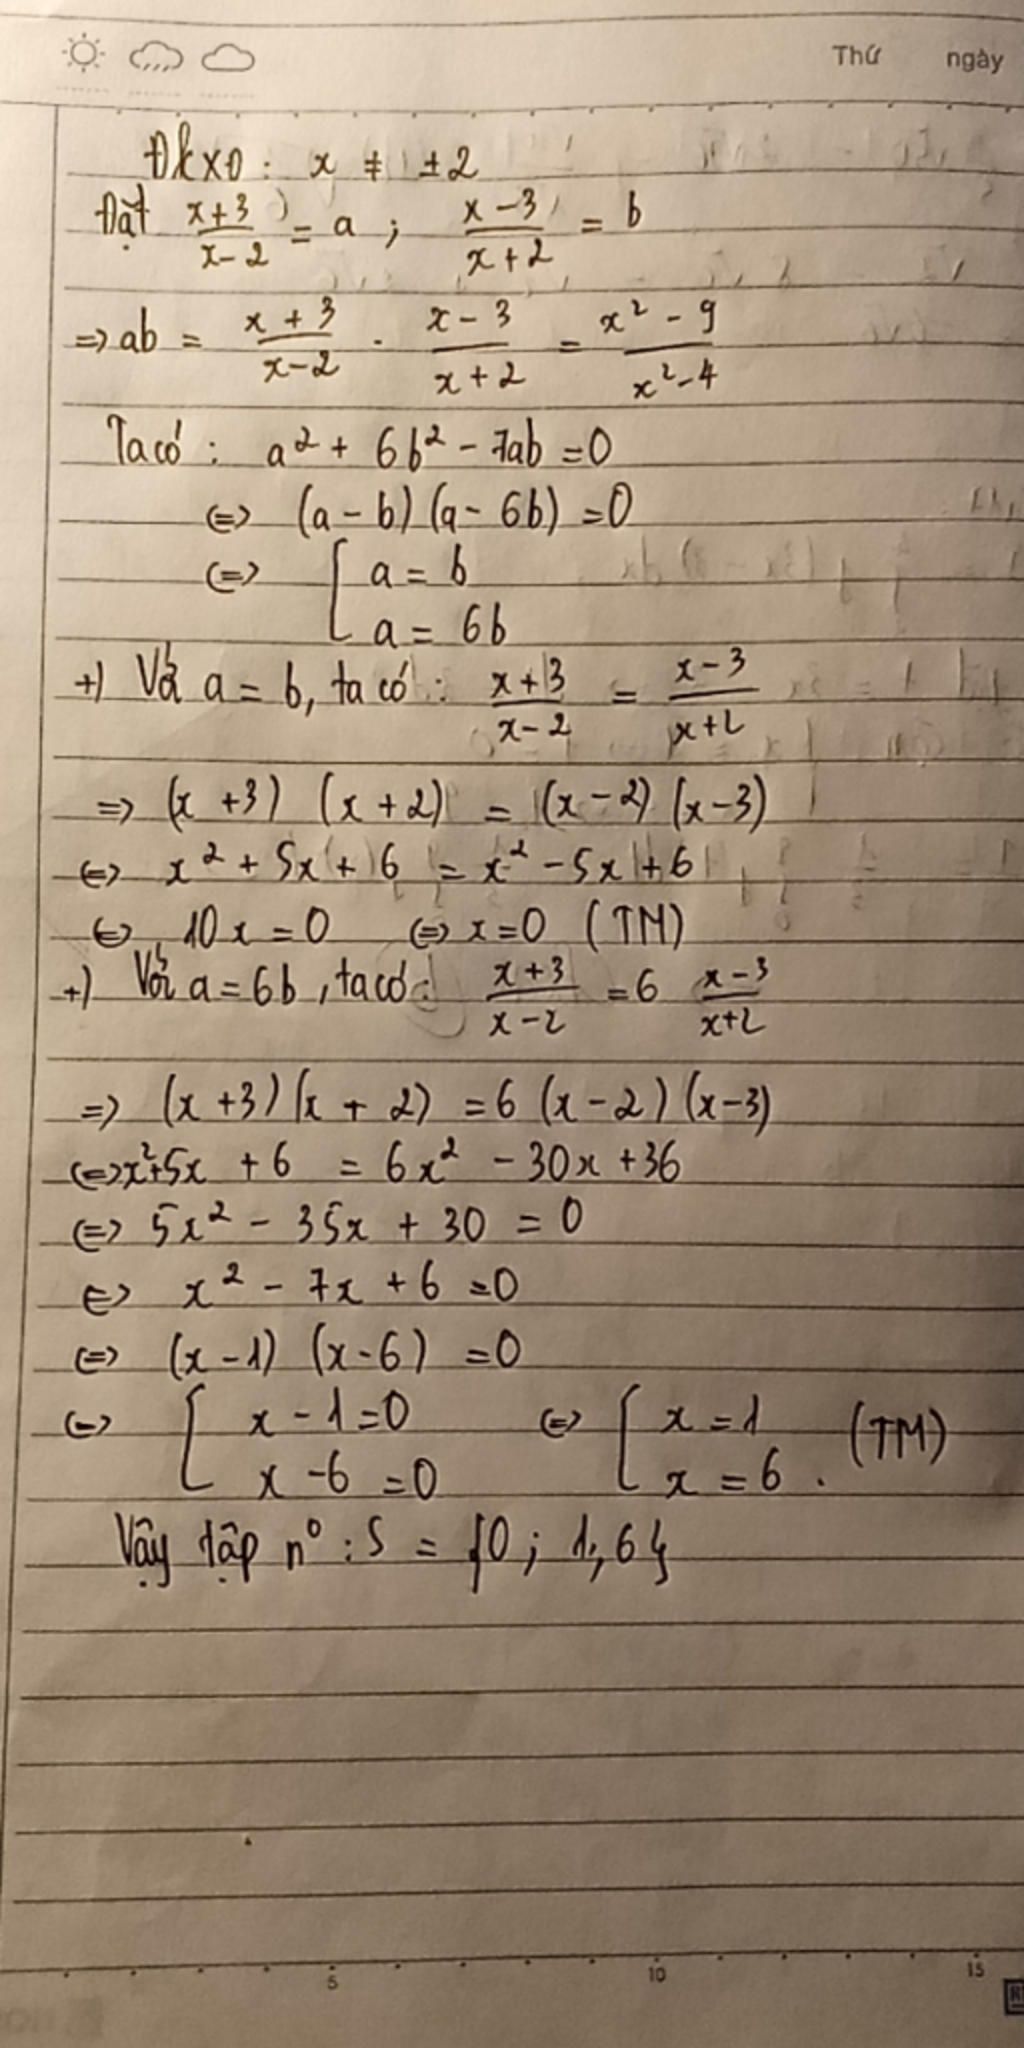 Thứ ngày
ĐKXĐ : x ≠ ±2
Đặt (x+3)/(x-2) = a ; (x-3)/(x+2) = b
=> ab = (x+3)/(x-2) . (x-3)/(x+2) = (x² - 9)/(x² - 4)
Ta có : a² + 6b² - 7ab = 0
<=> (a - b) (a - 6b) = 0
<=> [ a = b
a = 6b
+) Với a = b, ta có : (x+3)/(x-2) = (x-3)/(x+2)
=> (x +3) (x + 2) = (x - 2) (x - 3)
<=> x² + 5x + 6 = x² - 5x + 6
<=> 10x = 0 <=> x = 0 (TM)
+) Với a = 6b, ta có : (x+3)/(x-2) = 6 (x-3)/(x+2)
=> (x +3) (x + 2) = 6 (x - 2) (x - 3)
<=> x² + 5x + 6 = 6x² - 30x + 36
<=> 5x² - 35x + 30 = 0
<=> x² - 7x + 6 = 0
<=> (x - 1) (x - 6) = 0
<=> [ x - 1 = 0 <=> [ x = 1 (TM)
x - 6 = 0 x = 6 .
Vậy tập n° : S = {0 ; 1; 6}
5 10 15